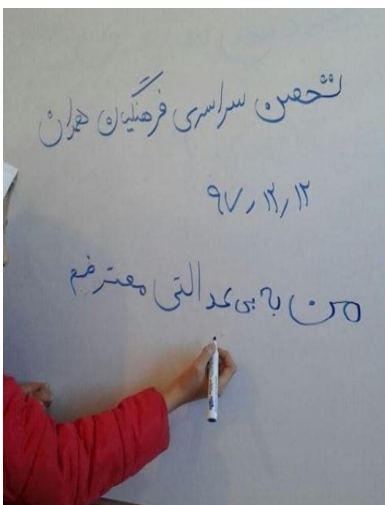 تحصن سراسری فرهنگیان همدان
۹۷٫۱۲٫۱۲
من به بی عدالتی معترضم